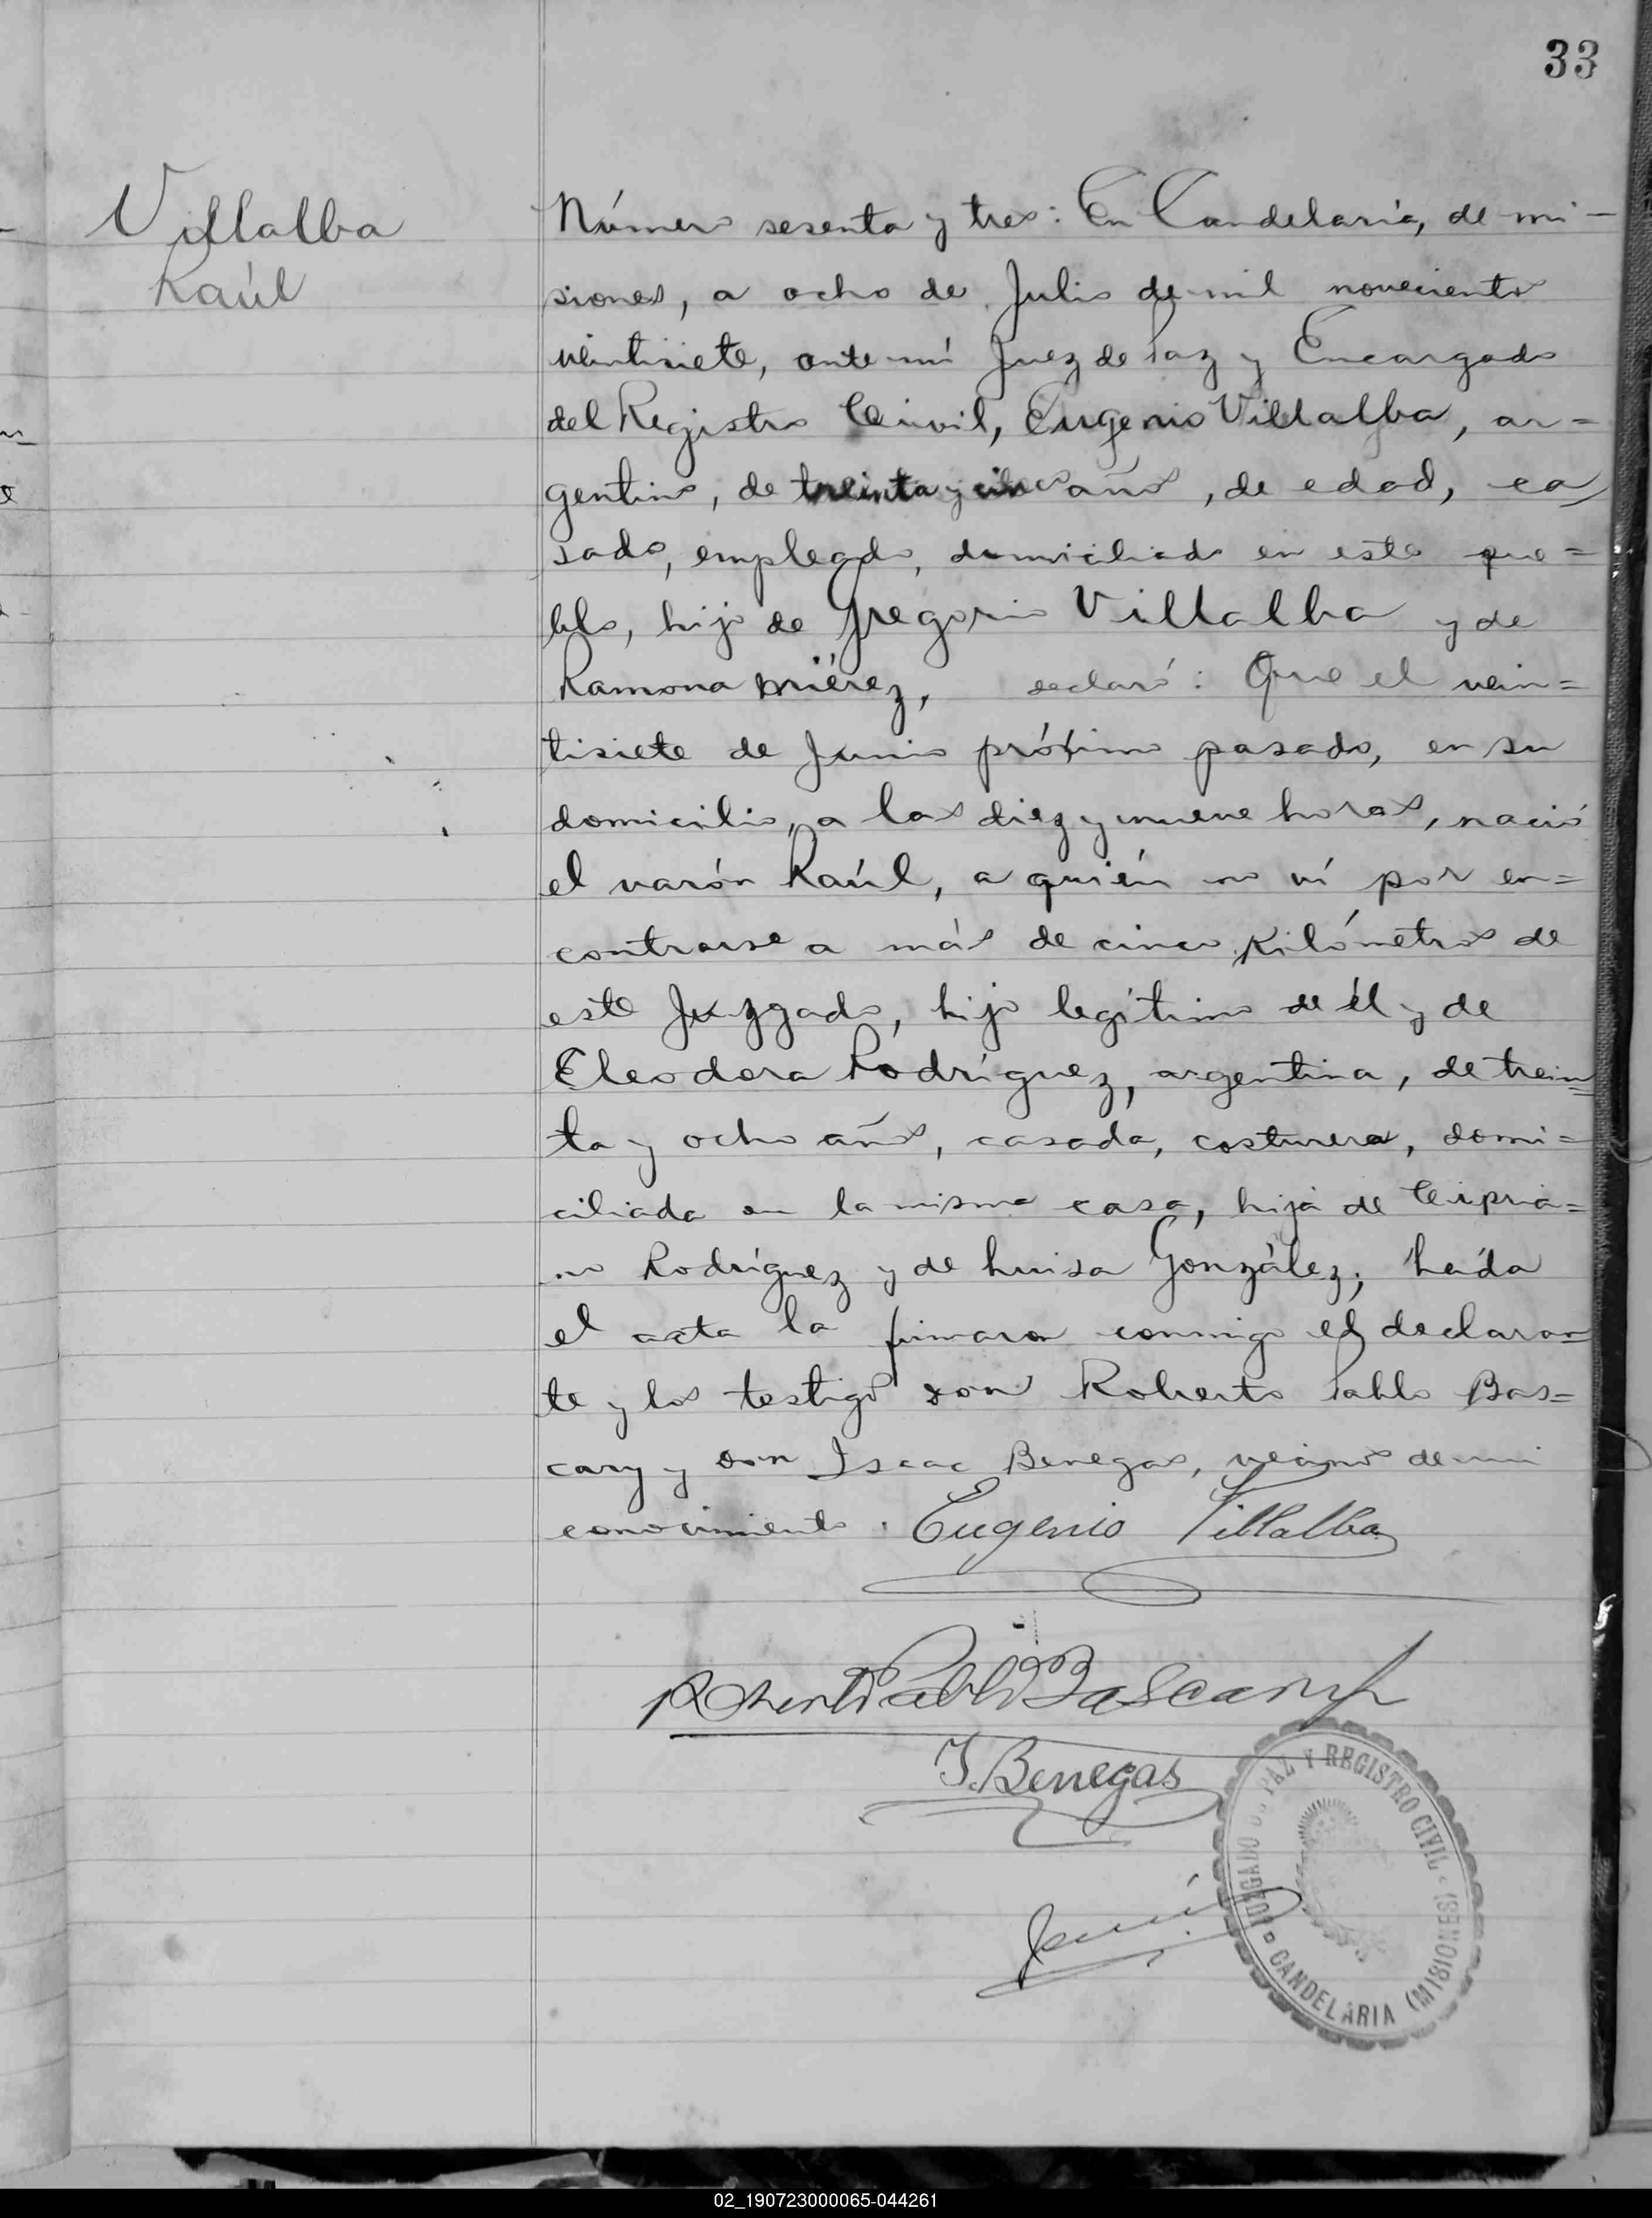 33
Villalba
Raúl
Número sesenta y tres: En Candelaria, de mi-
siones, a ocho de Julio de mil novecientos
veintisiete, ante mí Juez de Paz y Encargado
del Registro Civil, Eugenio Villalba, ar=
gentino, de treinta y cinco años, de edad, ca
sado, empleado, domiciliado en este pue=
blo, hijo de Gregorio Villalba y de
Ramona Miérez, declaró: Que el vein=
tisiete de Junio próximo pasado, en su
domicilio, a las diez y nueve horas, nació
el varón Raúl, a quién no ví por en=
contrarse a más de cinco kilómetros de
este Juzgado, hijo legítimo de él y de
Eleodora Rodríguez, argentina, de trein=
ta y ocho años, casada, costurera, domi=
ciliada en la misma casa, hija de Cipria=
no Rodríguez y de Luisa González; Leída
el acta la firmaron conmigo el declaran=
te y los testigos don Roberto Pablo Bas=
cary y don Isaac Benegas, vecinos de mi
conocimiento. Eugenio Villalba
Roberto Pablo Bascary
I. Benegas
JUZGADO DE PAZ Y REGISTRO CIVIL
CANDELARIA (MISIONES)
02_190723000065-044261